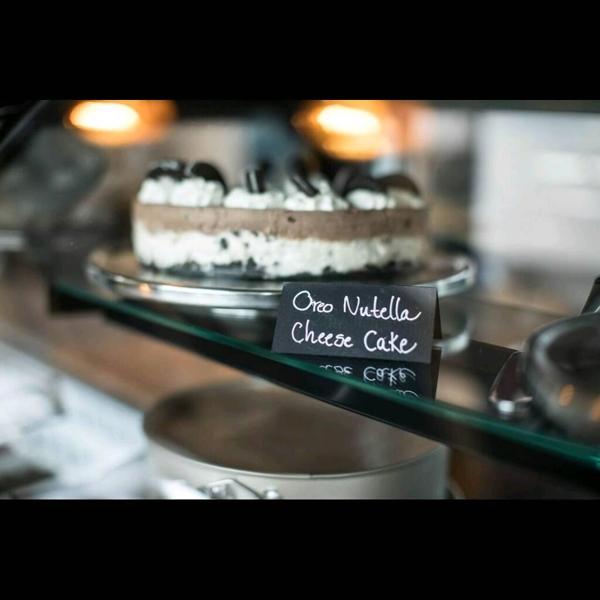 Oreo Nutella
Cheese Cake